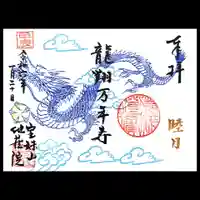 奉拝
睦月
龍翔万年寿
令和六年
一月二十日
宝珠山
地蔵院